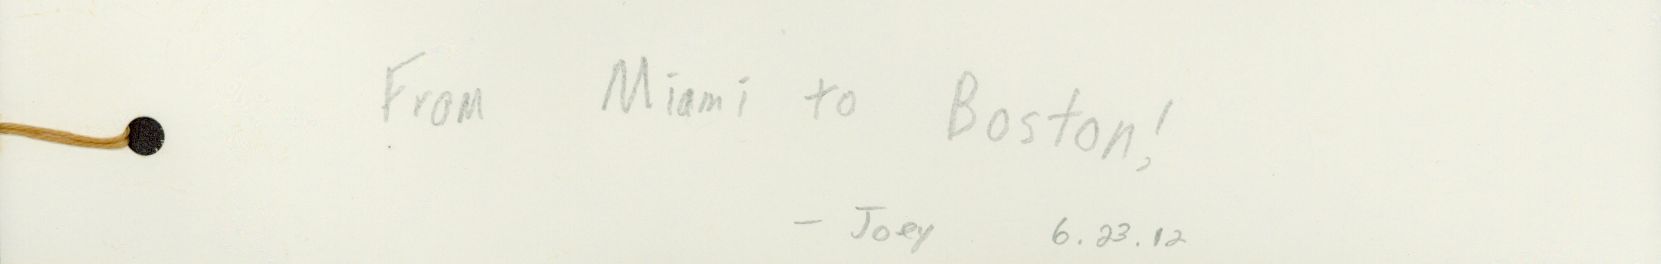 From Miami to Boston!
- Joey 6.23.12